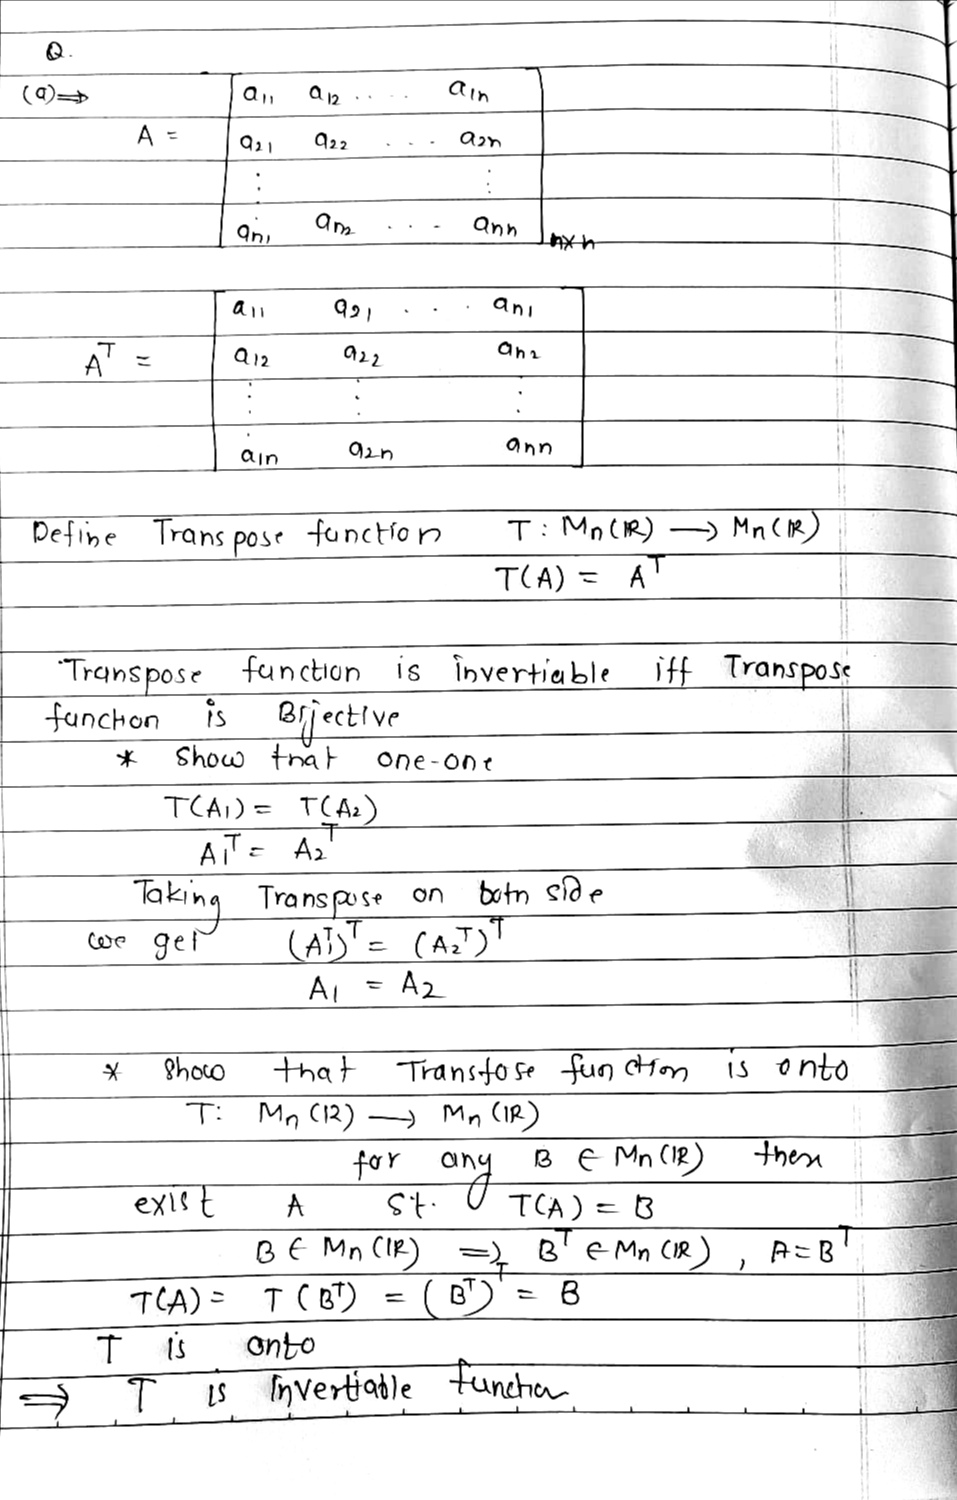 Q.
(a)⇒
a11 a12 .... a1n
A = a21 a22 ... a2n
⋮ ⋮
an1 an2 ... ann n×n
a11 a21 ... an1
A^T = a12 a22 an2
⋮ ⋮ ⋮
a1n a2n ann
Define Transpose function T : Mn(IR) → Mn(IR)
T(A) = A^T
Transpose function is invertiable iff Transpose
function is Bijective
* Show that one-one
T(A1) = T(A2)
A1^T = A2^T
Taking Transpose on both side
we get (A1^T)^T = (A2^T)^T
A1 = A2
* Show that Transfose function is onto
T: Mn(IR) → Mn(IR)
for any B ∈ Mn(IR) then
exist A s.t. T(A) = B
B ∈ Mn(IR) ⇒ B^T ∈ Mn(IR), A=B^T
T(A) = T(B^T) = (B^T)^T = B
T is onto
⇒ T is Invertiable function